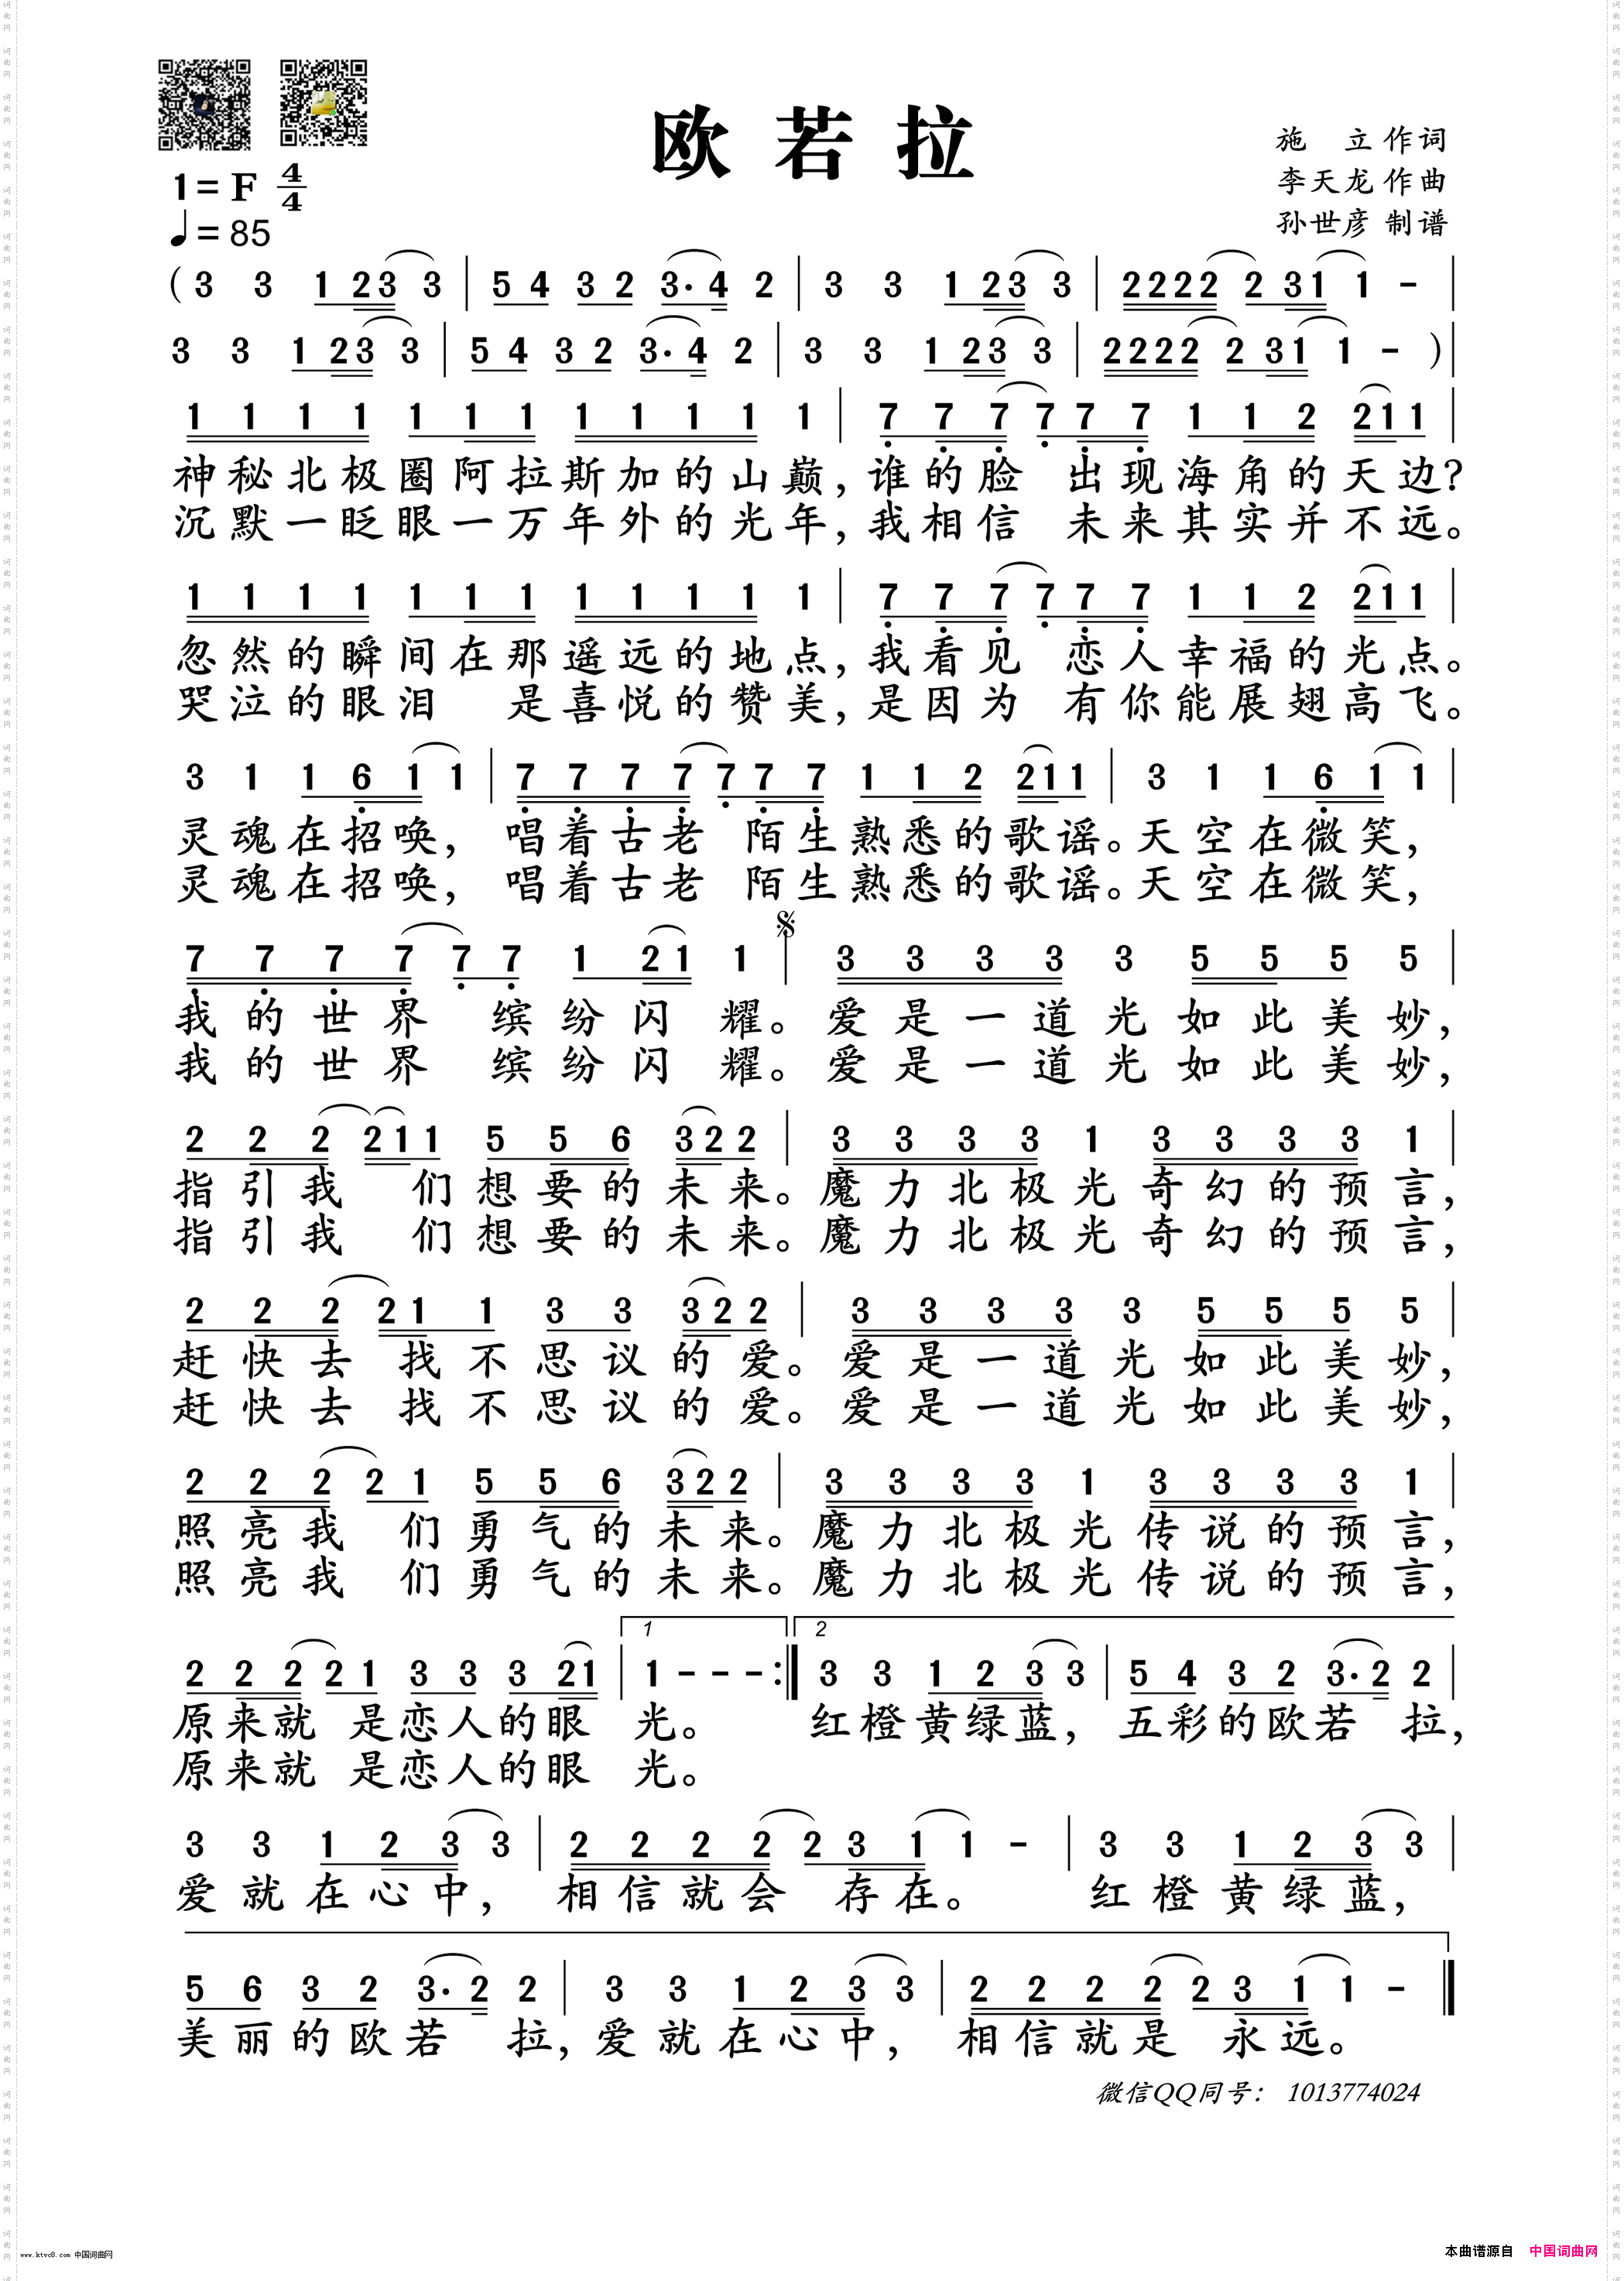 欧若拉
施 立 作词
李天龙 作曲
孙世彦 制谱
1= F 4/4
♩= 85
( 3 3 1 2 3 3 | 5 4 3 2 3· 4 2 | 3 3 1 2 3 3 | 2 2 2 2 2 3 1 1 - |
3 3 1 2 3 3 | 5 4 3 2 3· 4 2 | 3 3 1 2 3 3 | 2 2 2 2 2 3 1 1 - ) |
1 1 1 1 1 1 1 1 1 1 1 1 | 7 7 7 7 7 7 1 1 2 2 1 1 |
神秘北极圈阿拉斯加的山巅，谁的脸 出现海角的天边？
沉默一眨眼一万年外的光年，我相信 未来其实并不远。
1 1 1 1 1 1 1 1 1 1 1 1 | 7 7 7 7 7 7 1 1 2 2 1 1 |
忽然的瞬间在那遥远的地点，我看见 恋人幸福的光点。
哭泣的眼泪 是喜悦的赞美，是因为 有你能展翅高飞。
3 1 1 6 1 1 | 7 7 7 7 7 7 7 1 1 2 2 1 1 | 3 1 1 6 1 1 |
灵魂在招唤， 唱着古老 陌生熟悉的歌谣。天空在微笑，
灵魂在招唤， 唱着古老 陌生熟悉的歌谣。天空在微笑，
7 7 7 7 7 7 1 2 1 1 | 3 3 3 3 3 5 5 5 5 |
我的世界 缤纷闪 耀。爱是一道光如此美妙，
我的世界 缤纷闪 耀。爱是一道光如此美妙，
2 2 2 2 1 1 5 5 6 3 2 2 | 3 3 3 3 1 3 3 3 3 1 |
指引我 们想要的未来。魔力北极光奇幻的预言，
指引我 们想要的未来。魔力北极光奇幻的预言，
2 2 2 2 1 1 3 3 3 2 2 | 3 3 3 3 3 5 5 5 5 |
赶快去 找不思议的爱。爱是一道光如此美妙，
赶快去 找不思议的爱。爱是一道光如此美妙，
2 2 2 2 1 5 5 6 3 2 2 | 3 3 3 3 1 3 3 3 3 1 |
照亮我 们勇气的未来。魔力北极光传说的预言，
照亮我 们勇气的未来。魔力北极光传说的预言，
1 2
2 2 2 2 1 3 3 3 2 1 | 1 - - - :| 3 3 1 2 3 3 | 5 4 3 2 3· 2 2 |
原来就 是恋人的眼 光。 红橙黄绿蓝， 五彩的欧若 拉，
原来就 是恋人的眼 光。
3 3 1 2 3 3 | 2 2 2 2 2 3 1 1 - | 3 3 1 2 3 3 |
爱就在心中， 相信就会 存在。 红橙黄绿蓝，
5 6 3 2 3· 2 2 | 3 3 1 2 3 3 | 2 2 2 2 2 3 1 1 - |
美丽的欧若 拉，爱就在心中， 相信就是 永远。
微信QQ同号： 1013774024
www.ktvc8.com 中国词曲网
本曲谱源自 中国词曲网